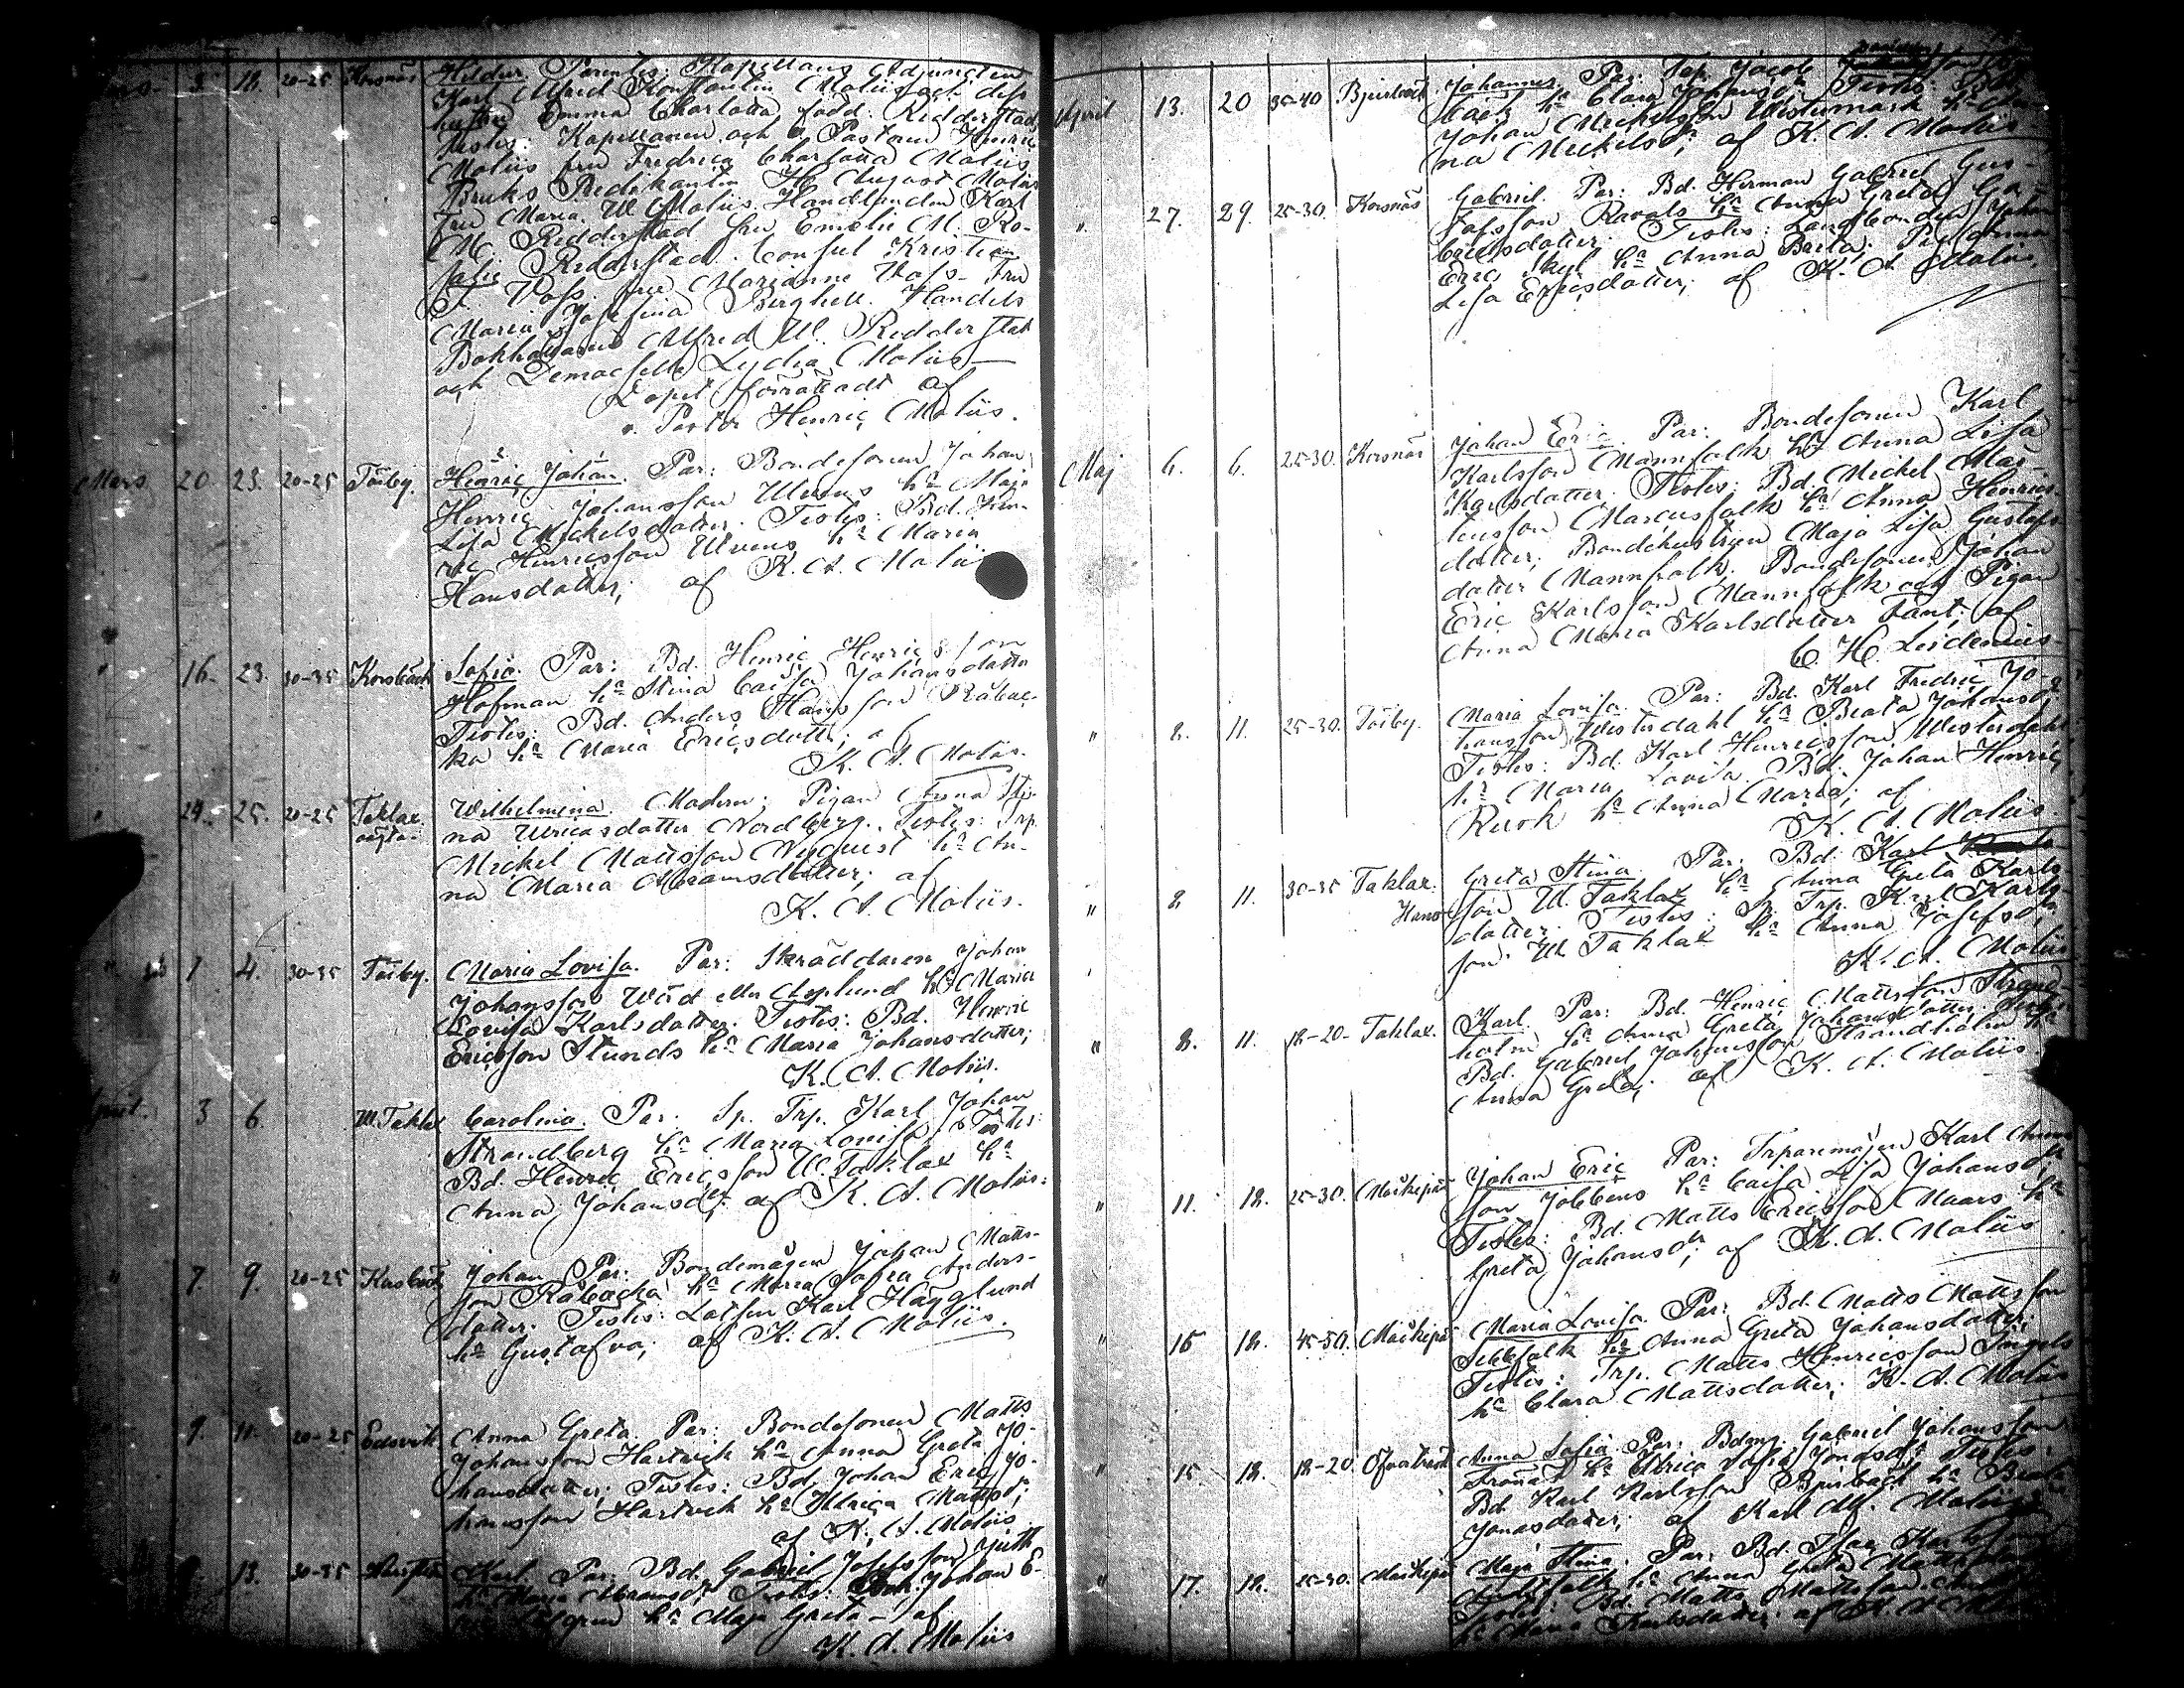 3. 12. 20-25 Korsnäs Hildur. Parentes: Kapellans Adjuncten
Karl Alfred Konstantin Moliis och dess
hustru Emma Charlotta född Ridderstad
Testes: Kapellanen och v. Pastorn Henric
Moliis fru Fredrica Charlotta Moliis
Bruks Predikanten H. August Moliis
Fru Maria W. Moliis. Handlanden Karl
M. Ridderstad fru Emelie M. Ro-
salie Ridderstad. Consul Kristian
T. Voss. fru Marianne Voss. Fru
Maria Josefina Berghell. Handels
Bokhållaren Alfred W. Ridderstad
och Demoiselle Lydia Moliis
Dopet förrättadt af
v. Pastor Henric Moliis.
Mars 20. 23. 20-25 Töiby. Henric Johan. Par: Bondesonen Johan
Henric Johansson Ulvens ha Maja
Lisa Mickelsdotter. Testes: Bd. Hen-
ric Henricsson Ulvens ha Maria
Hansdotter; af K. A. Moliis
" 16. 23. 30-35 Korsbäck Sofia. Par: Bd. Henric Henricsson
Hofman ha Stina Caisa Johansdotter
Testes: Bd. Anders Hansson Råbac-
ka ha Maria Ericsdotter; af
K. A. Moliis.
" 24. 25. 20-25 Taklax Wilhelmina. Modern: Pigan Anna Sti-
na Ulricasdotter Nordberg. Testes: Trp.
Mickel Mattsson Nyquist ha An-
na Maria Abramsdotter; af
K. A. Moliis.
" 1. 4. 30-35 Töiby. Maria Lovisa. Par: Skräddaren Johan
Johansson Wärd eller Asplund ha Maria
Lovisa Karlsdotter. Testes: Bd. Henric
Ericsson Stunds ha Maria Johansdotter;
K. A. Moliis.
April. 3 6. W. Taklax Carolina. Par: Sp. Trp. Karl Johan
Strandberg ha Maria Lovisa; Testes:
Bd. Henric Ericsson W. Taklax ha
Anna Johansdr; af K. A. Moliis.
" 7. 9. 20-25 Korsbäck Johan. Par: Bondemågen Johan Matts-
son Råbacka ha Maria Sofia Anders-
dotter. Testes: Lotsen Karl Hägglund
ha Gustafva; af K. A. Moliis.
9. 11. 20-25 Edsvik Anna Greta. Par: Bondesonen Matts
Johansson Hartvik ha Anna Greta Jo-
hansdotter; Testes: Bd. Johan Eric Jo-
hansson Hartvik ha Ulrica Mattsdr;
af K. A. Moliis
13. 30-35 Karl. Par: Bd. Gabriel Josefsson Juth
ha Maria Abramsdr Testes: Johan E-
ha Maja Greta af
K. A. Moliis
April 13. 20 35-40 Björkback Johannes. Par: Trp. Jacob
ha Clara Johansdr. Testes:
Johan Mickelsson Westermark ha An-
na Mickelsdr; af K. A. Moliis
" 27. 29. 25-30. Korsnäs Gabriel. Par: Bd. Herman Gabriel Gus-
tafsson Ravals ha Anna Greta Ga-
brielsdotter. Testes: Landbonden Johan
Eric Skyt ha Anna Brita; Pigan Anna
Lisa Ericsdotter; af K. A. Moliis.
Maj 6. 6. 25-30. Korsnäs Johan Eric. Par: Bondesonen Karl
Karlsson Mannfolk ha Anna Lisa
Karlsdotter. Testes: Bd. Mickel Mår-
tensson Marcusfolk ha Anna Henrics-
dotter; Bondehustrun Maja Lisa Gustafs-
dotter Mannfolk. Bondesonen Johan
Eric Karlsson Mannfolk och Pigan
Anna Maria Karlsdotter Fant; af
C. H. Leidenius
" 2. 11. 25-30. Töiby. Maria Lovisa. Par: Bd. Karl Fredric Jo-
hansson Westerdahl ha Beata Johansdr
Testes: Bd. Karl Henricsson Westerdahl
ha Maria Lovisa. Bd. Johan Henric
Rusk ha Anna Maria; af
K. A. Moliis.
" 2. 11. 30-35 Taklax. Greta Stina. Par: Bd. Karl Karls-
son W. Taklax ha Anna Greta Karls-
dotter. Testes: Sp. Trp. Karl Karls-
son W. Taklax ha Anna Josefsdr;
K. A. Moliis
" 8. 11. 18-20- Taklax. Karl. Par: Bd. Henric Mattsson Strand-
holm ha Anna Greta Johansdotter Testes
Bd. Gabriel Johansson Strandholm ha
Anna Greta; af K. A. Moliis
" 11. 18. 25-30. Molpe Johan Eric Par: Trparemågen Karl Anders-
son Jobbens ha Caisa Lisa Johansdr
Testes: Bd. Matts Ericsson Maars ha
Greta Johansdr; af K. A. Moliis
" 15 18. 45-50. Maria Lovisa. Par: Bd. Matts Mattsson
ha Anna Greta Johansdotter;
Testes: Trp. Matts Henricsson Ingels
ha Clara Mattsdotter; K. A. Moliis
" 15. 18. 18-20 Anna Sofia Par: Bdmg. Gabriel Johansson
ha Ulrica Sofia Jonasdr Testes:
Bd. Karl Karlsson Björkback ha Beata
Jonasdotter; af Karl Alf. Moliis
" 17. 18. 25-30. Maja Stina. Par: Bd. Isac Karlsson
ha Anna Greta
Testes: Bd. Matts Mattsson
ha Maria Karlsdotter; af K. A.